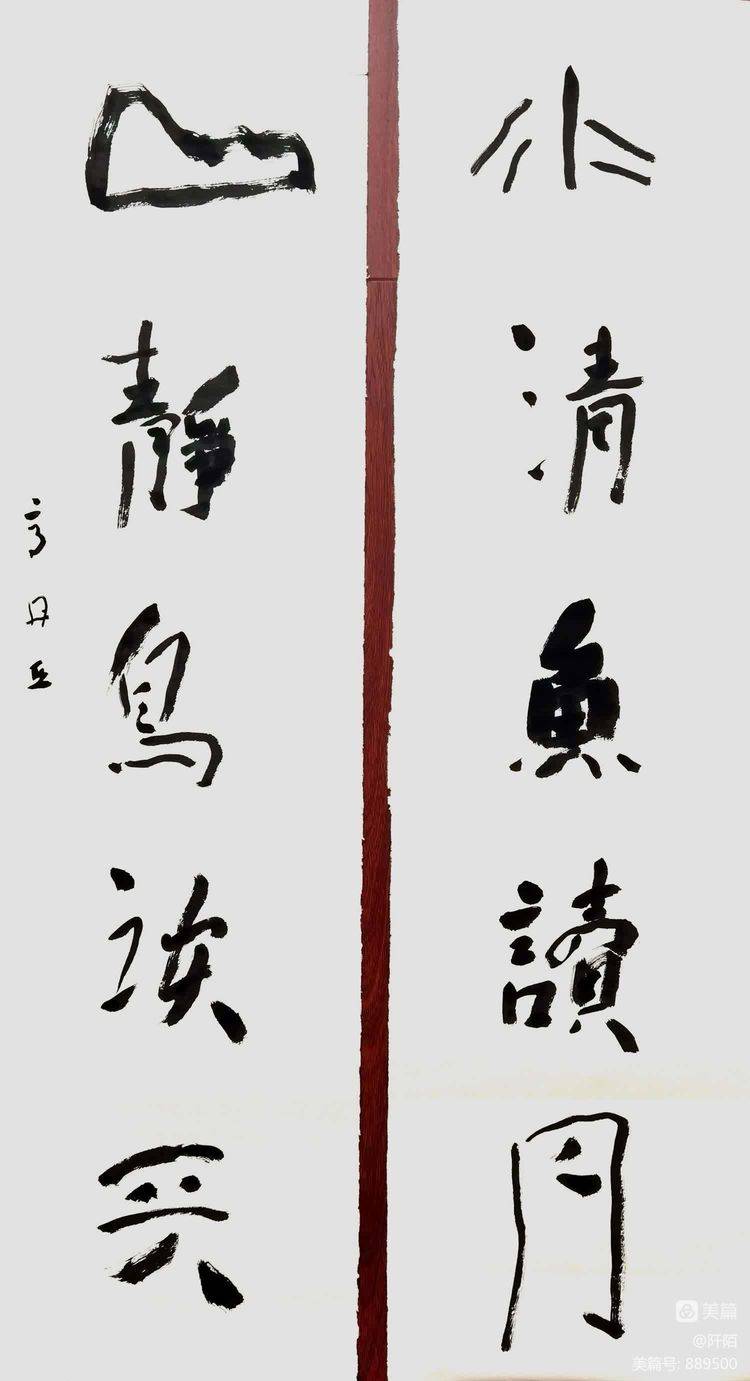 水清魚讀月
山靜鳥談天
美篇
@阡陌
美篇号: 889500